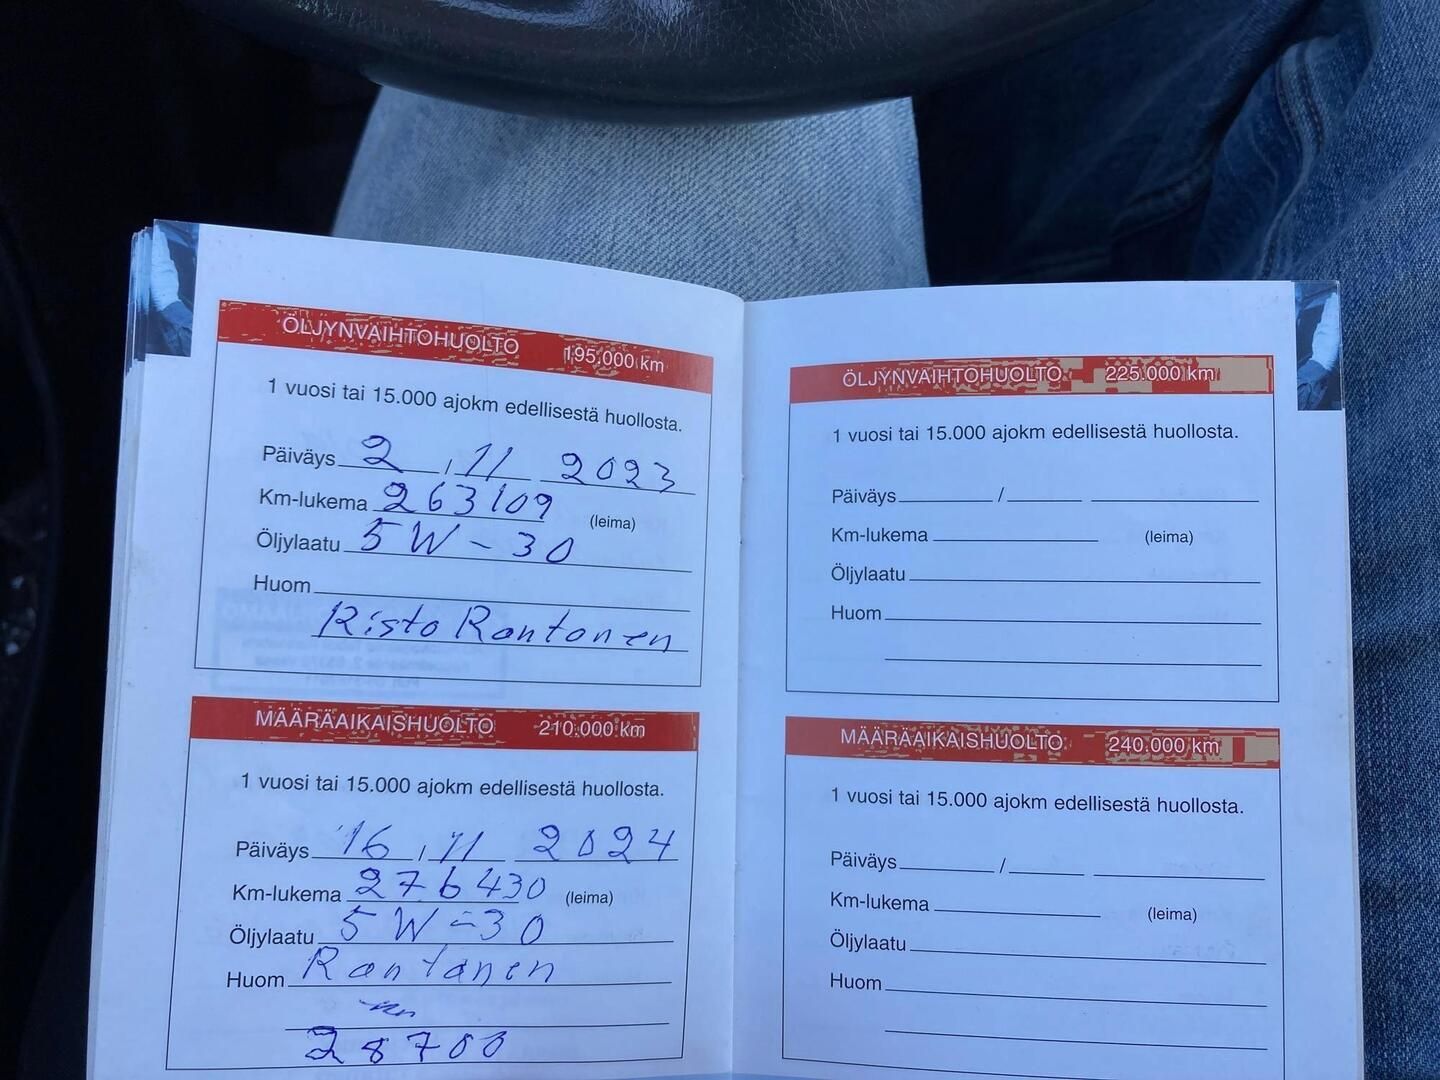 ÖLJYNVAIHTOHUOLTO 195.000 km
1 vuosi tai 15.000 ajokm edellisestä huollosta.
Päiväys 2 / 11 2023
Km-lukema 263109 (leima)
Öljylaatu 5W-30
Huom
Risto Rantanen
MÄÄRÄAIKAISHUOLTO 210.000 km
1 vuosi tai 15.000 ajokm edellisestä huollosta.
Päiväys 16 / 11 2024
Km-lukema 276430 (leima)
Öljylaatu 5W-30
Huom Rantanen
28700
ÖLJYNVAIHTOHUOLTO 225.000 km
1 vuosi tai 15.000 ajokm edellisestä huollosta.
Päiväys /
Km-lukema (leima)
Öljylaatu
Huom
MÄÄRÄAIKAISHUOLTO 240.000 km
1 vuosi tai 15.000 ajokm edellisestä huollosta.
Päiväys /
Km-lukema (leima)
Öljylaatu
Huom